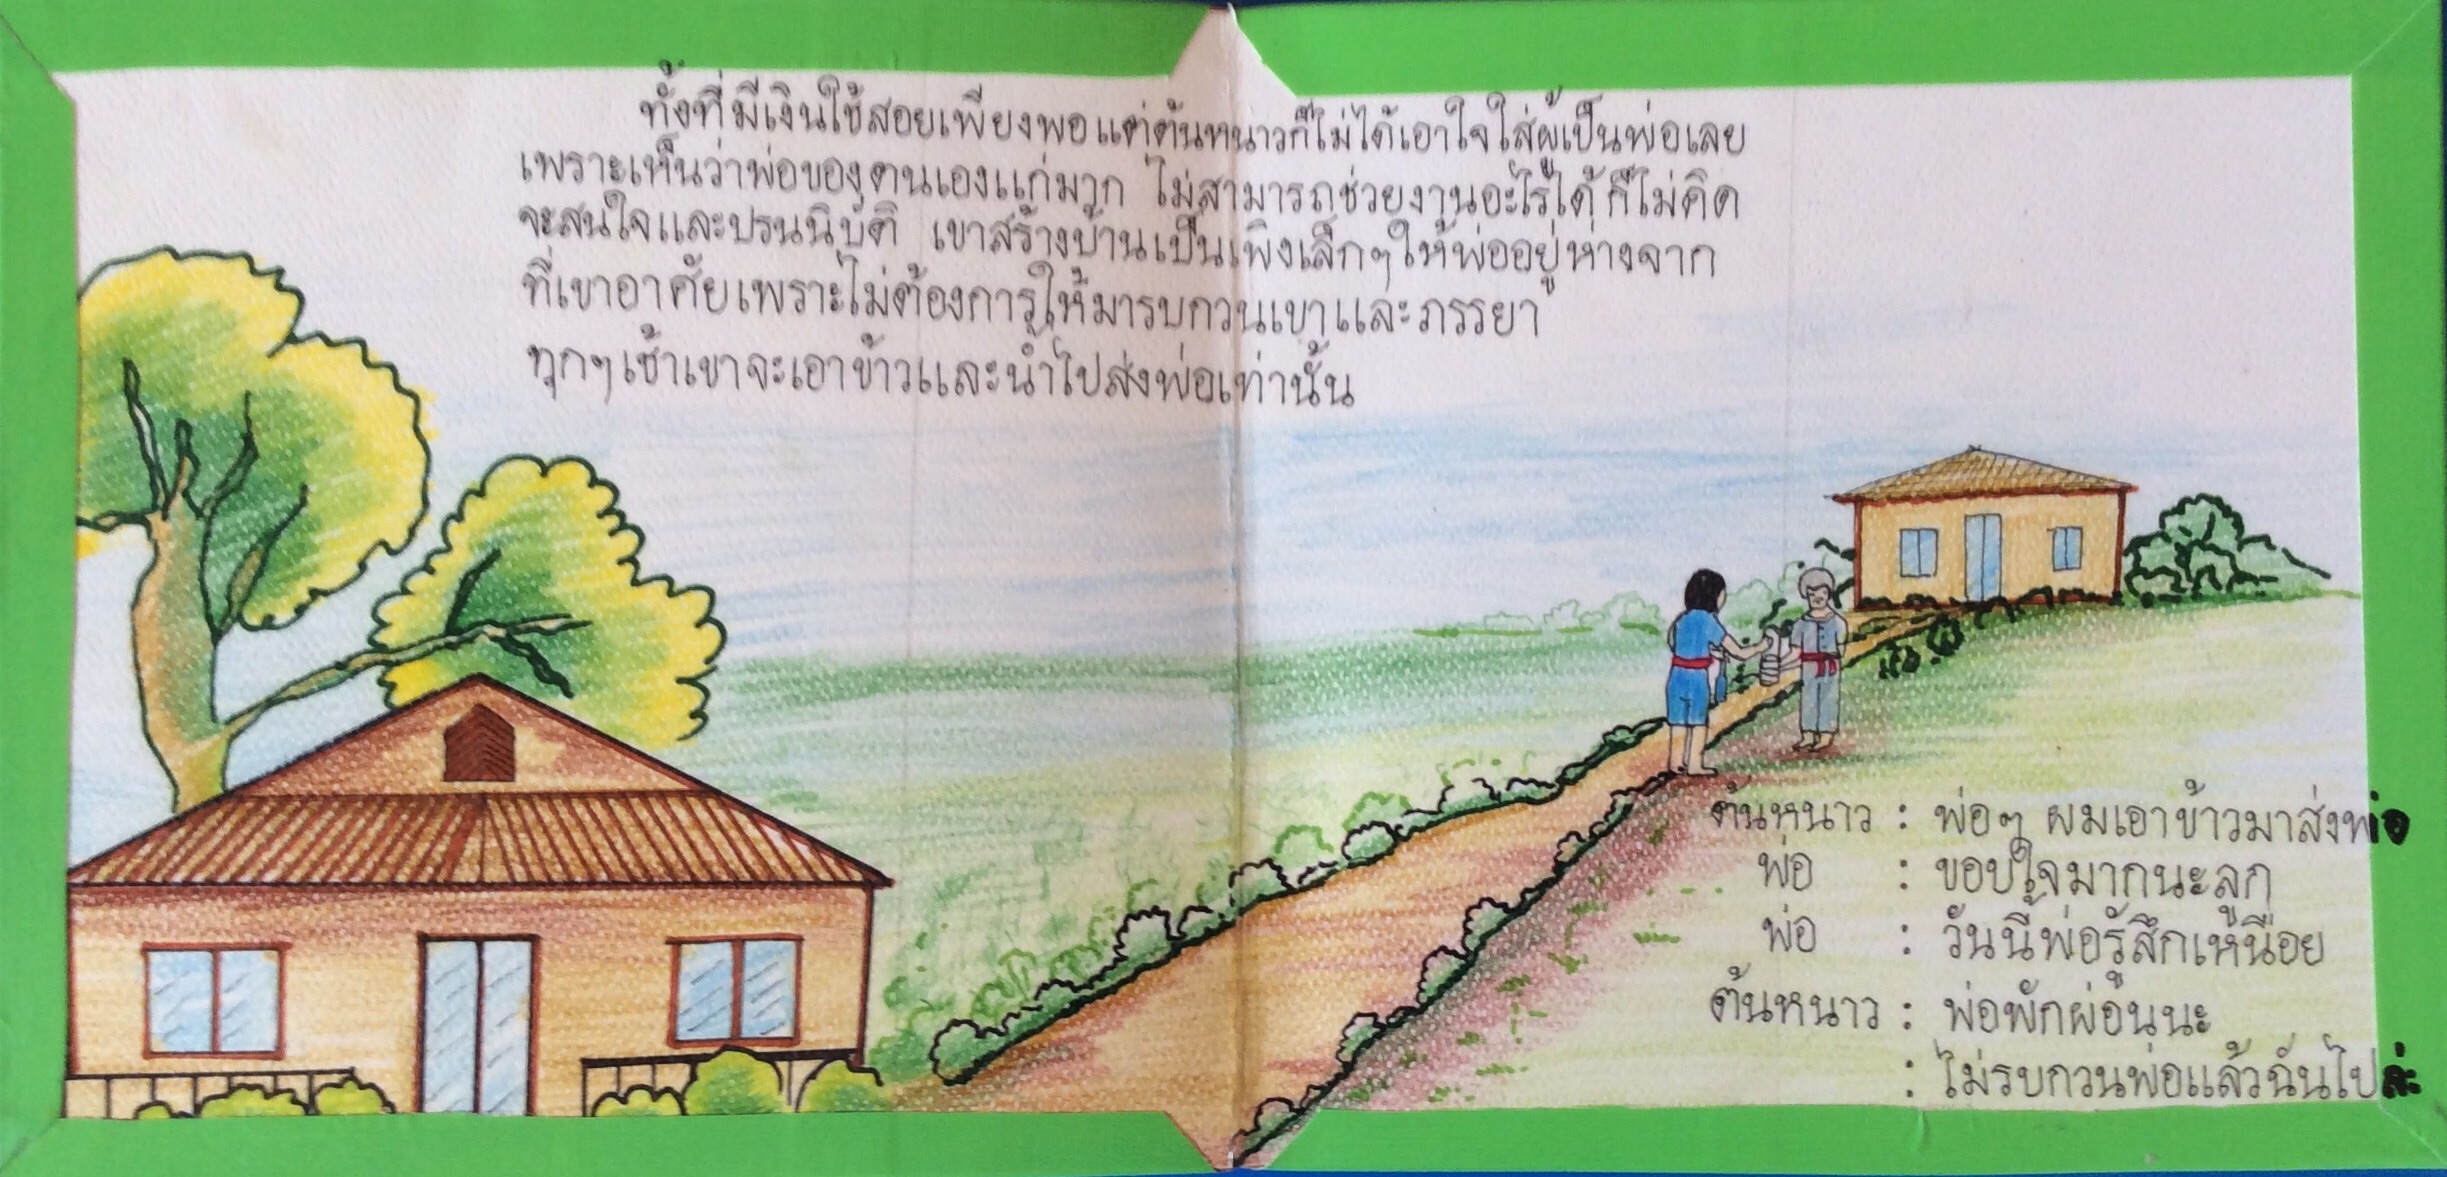 ทั้งที่มีเงินใช้สอยเพียงพอแต่ต้นหนาวก็ไม่ได้เอาใจใส่ผู้เป็นพ่อเลย
เพราะเห็นว่าพ่อของตนเองแก่มาก ไม่สามารถช่วยงานอะไรได้ ก็ไม่คิด
จะสนใจและปรนนิบัติ เขาสร้างบ้านเป็นเพิงเล็กๆให้พ่ออยู่ห่างจาก
ที่เขาอาศัยเพราะไม่ต้องการให้มารบกวนเขาและภรรยา
ทุกๆเช้าเขาจะเอาข้าวและน้ำไปส่งพ่อเท่านั้น
ต้นหนาว : พ่อๆ ผมเอาข้าวมาส่งพ่อ
พ่อ : ขอบใจมากนะลูก
พ่อ : วันนี้พ่อรู้สึกเหนื่อย
ต้นหนาว : พ่อพักผ่อนนะ
: ไม่รบกวนพ่อแล้วฉันไปล่ะ